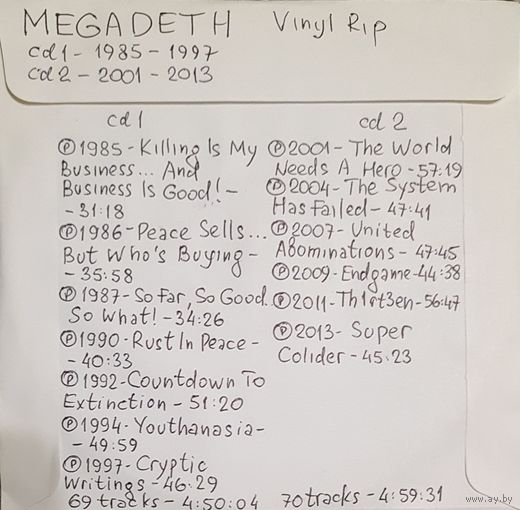 MEGADETH Vinyl Rip
cd1 - 1985 - 1997
cd2 - 2001 - 2013
cd1
Ⓟ1985 - Killing Is My
Business... And
Business Is Good! -
- 31:18
Ⓟ1986 - Peace Sells...
But Who's Buying -
- 35:58
Ⓟ1987 - So Far, So Good.
So What! - 34:26
Ⓟ1990 - Rust In Peace -
- 40:33
Ⓟ1992 - Countdown To
Extinction - 51:20
Ⓟ1994 - Youthanasia -
- 49:59
Ⓟ1997 - Cryptic
Writings - 46:29
69 tracks - 4:50:04
cd 2
Ⓟ2001 - The World
Needs A Hero - 57:19
Ⓟ2004 - The System
Has Failed - 47:41
Ⓟ2007 - United
Abominations - 47:45
Ⓟ2009 - Endgame - 44:38
Ⓟ2011 - Th1rt3en - 56:47
Ⓟ2013 - Super
Colider - 45:23
70 tracks - 4:59:31
www.ay.by